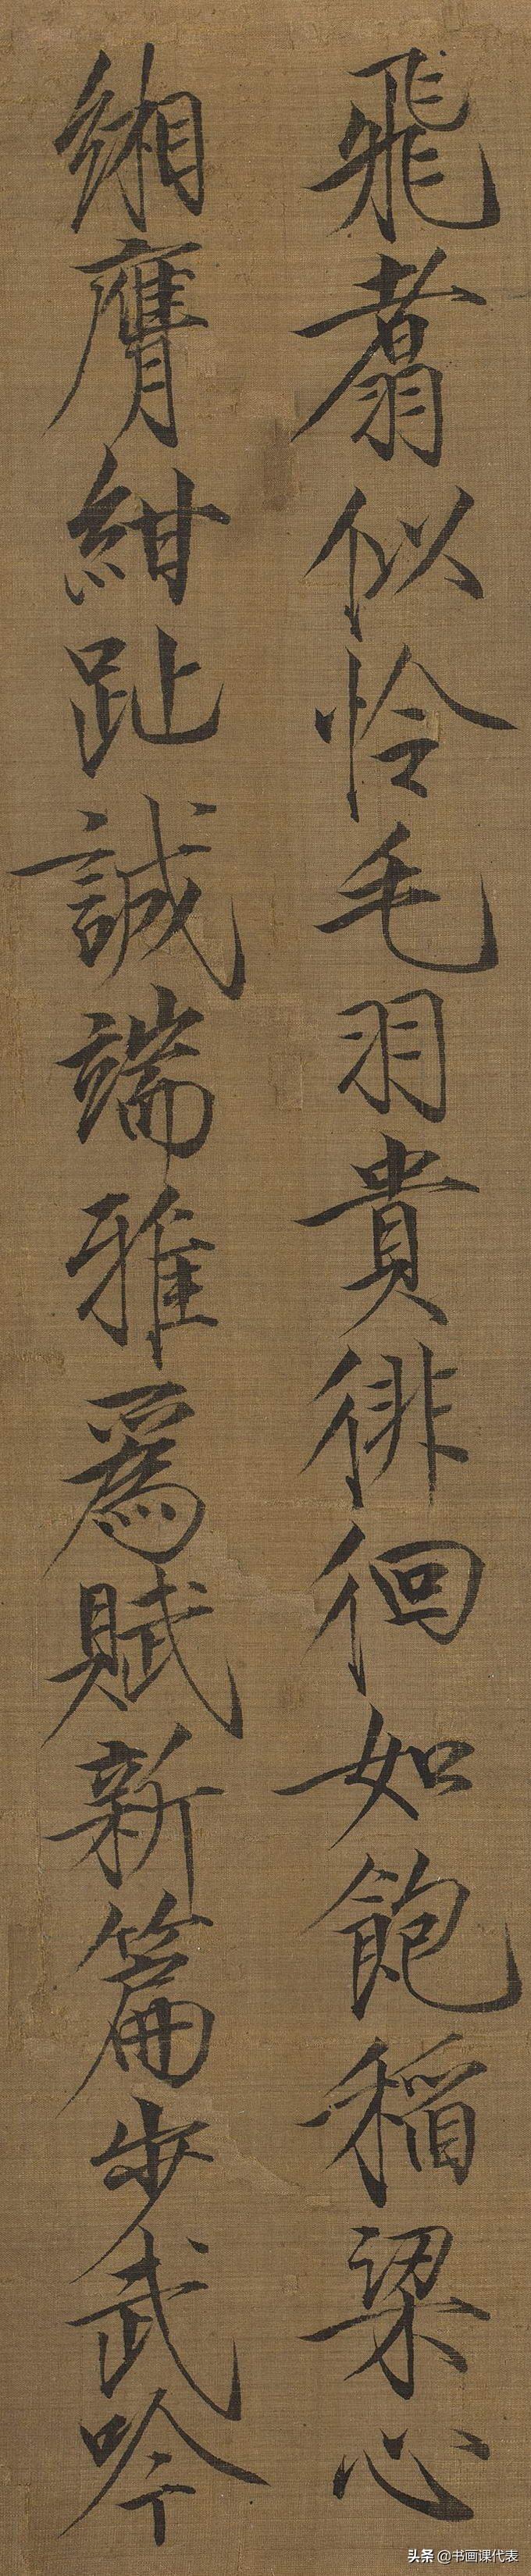 飛翥似怜毛羽貴徘徊如飽稻粱心
緗膺紺趾誠端雅爲賦新篇步武吟
头条 @书画课代表